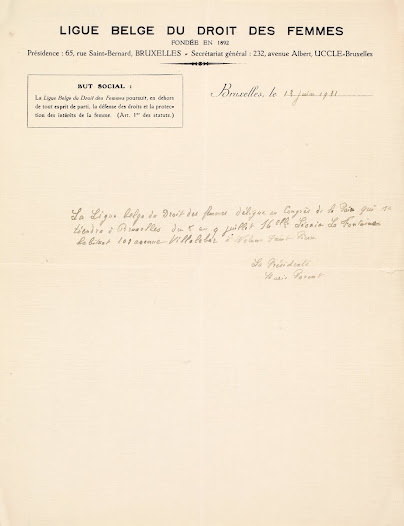 LIGUE BELGE DU DROIT DES FEMMES
FONDÉE EN 1892
Présidence : 65, rue Saint-Bernard, BRUXELLES - Secrétariat général : 232, avenue Albert, UCCLE-Bruxelles
BUT SOCIAL :
La Ligue Belge du Droit des Femmes poursuit, en dehors
de tout esprit de parti, la défense des droits et la protec-
tion des intérêts de la femme. (Art. 1er des statuts.)
Bruxelles, le 13 juin 1931
La Ligue belge du Droit des femmes délègue au Congrès de la Paix qui se
tiendra à Bruxelles du 5 au 9 juillet Léonie La Fontaine
habitant 109 avenue
La Présidente
Marie Parent